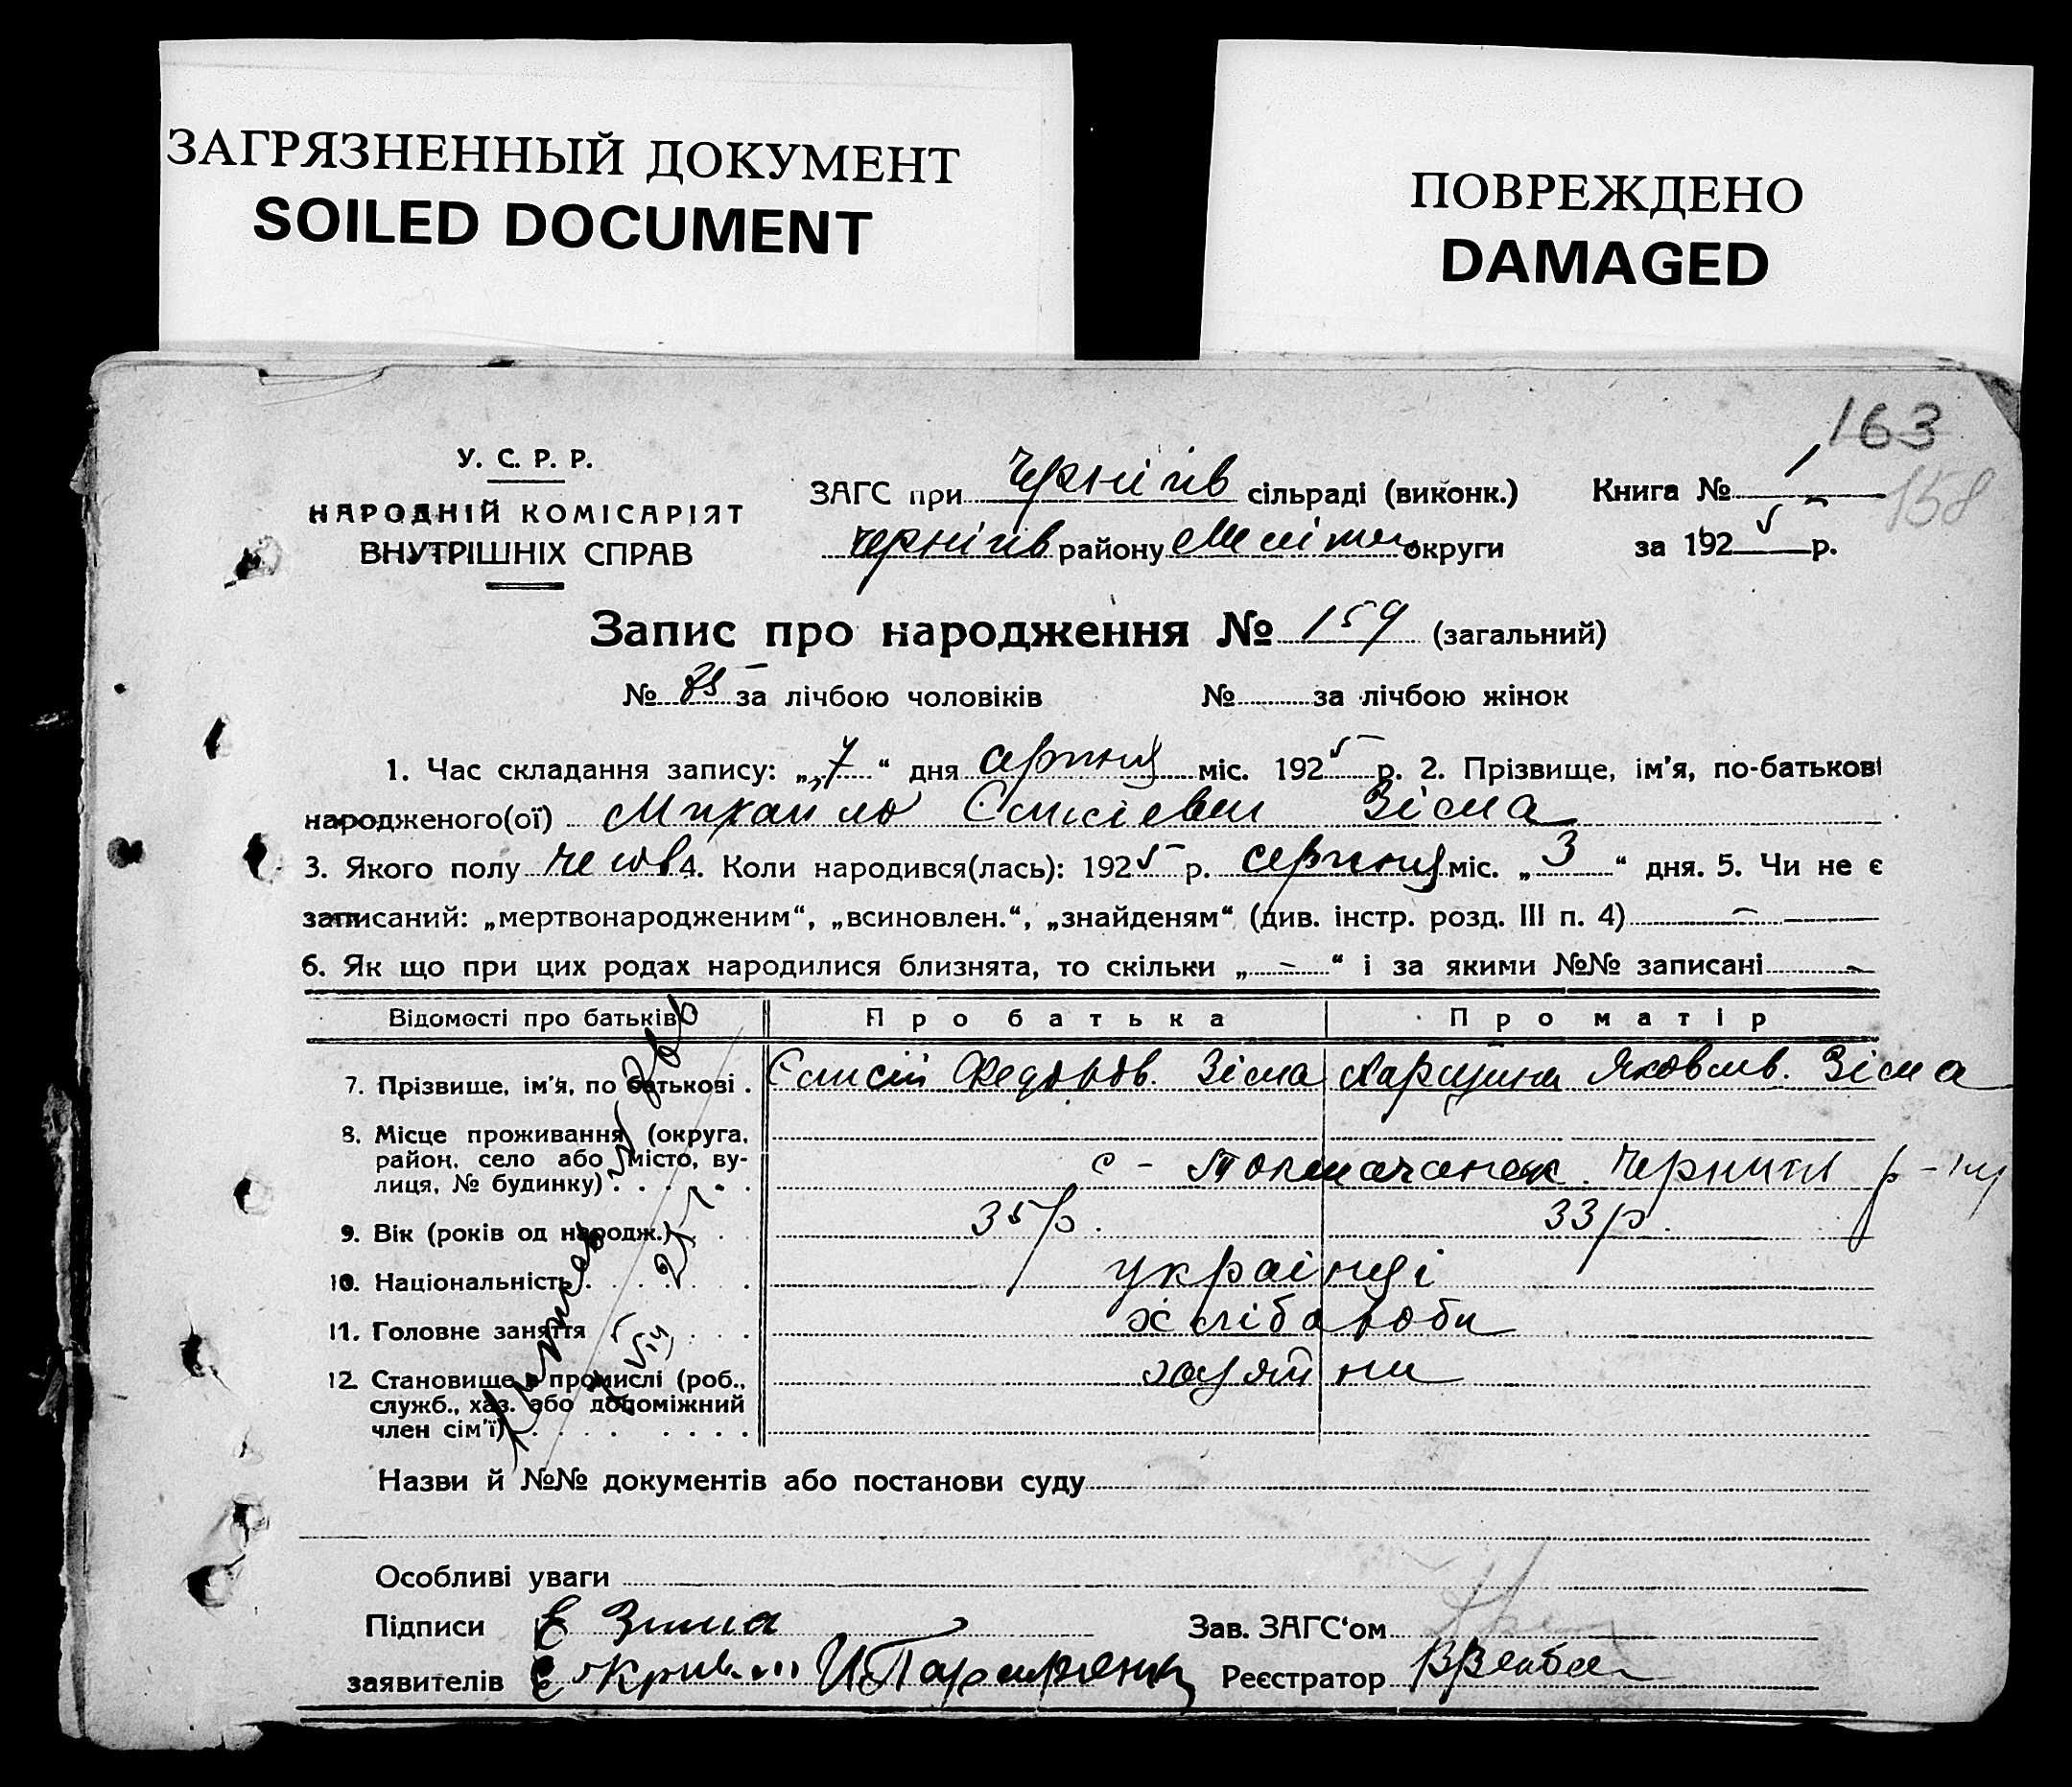 ЗАГРЯЗНЕННЫЙ ДОКУМЕНТ
SOILED DOCUMENT
ПОВРЕЖДЕНО
DAMAGED
163
158
У. С. Р. Р.
НАРОДНІЙ КОМІСАРІЯТ
ВНУТРІШНІХ СПРАВ
ЗАГС при Чернігів сільраді (виконк.)
Чернігів району Меліт округи
Книга № 1
за 1925 р.
Запис про народження № 159 (загальний)
№ 85 за лічбою чоловіків № за лічбою жінок
1. Час складання запису: „7“ дня серпня міс. 1925 р. 2. Прізвище, ім'я, по-батькові
народженого(ої) Михайло Єлисієвич Зіма
3. Якого полу чолов 4. Коли народився(лась): 1925 р. серпня міс. „3“ дня. 5. Чи не є
записаний: „мертвонародженим“, „всиновлен.“, „знайденям“ (див. інстр. розд. III п. 4) —
6. Як що при цих родах народилися близнята, то скільки „—“ і за якими №№ записані —
Відомості про батьків Про батька Про матір
7. Прізвище, ім'я, по батькові . Єлисій Федоров. Зіма Яковлив. Зіма
8. Місце проживання (округа,
район, село або місто, ву-
лиця, № будинку) . . . . . с - Токмачанск. Черниг р-ну
9. Вік (років од народж.) . . 35 р. 33 р.
10. Національність . . . . українці
11. Головне заняття . . . хлібороби
12. Становище в промислі (роб.,
служб., хаз. або допоміжний
член сім'ї) . . . . . . . . хазяїни
Назви й №№ документів або постанови суду
Особливі уваги
Підписи Е Зима Зав. ЗАГС'ом
заявителів Реєстратор